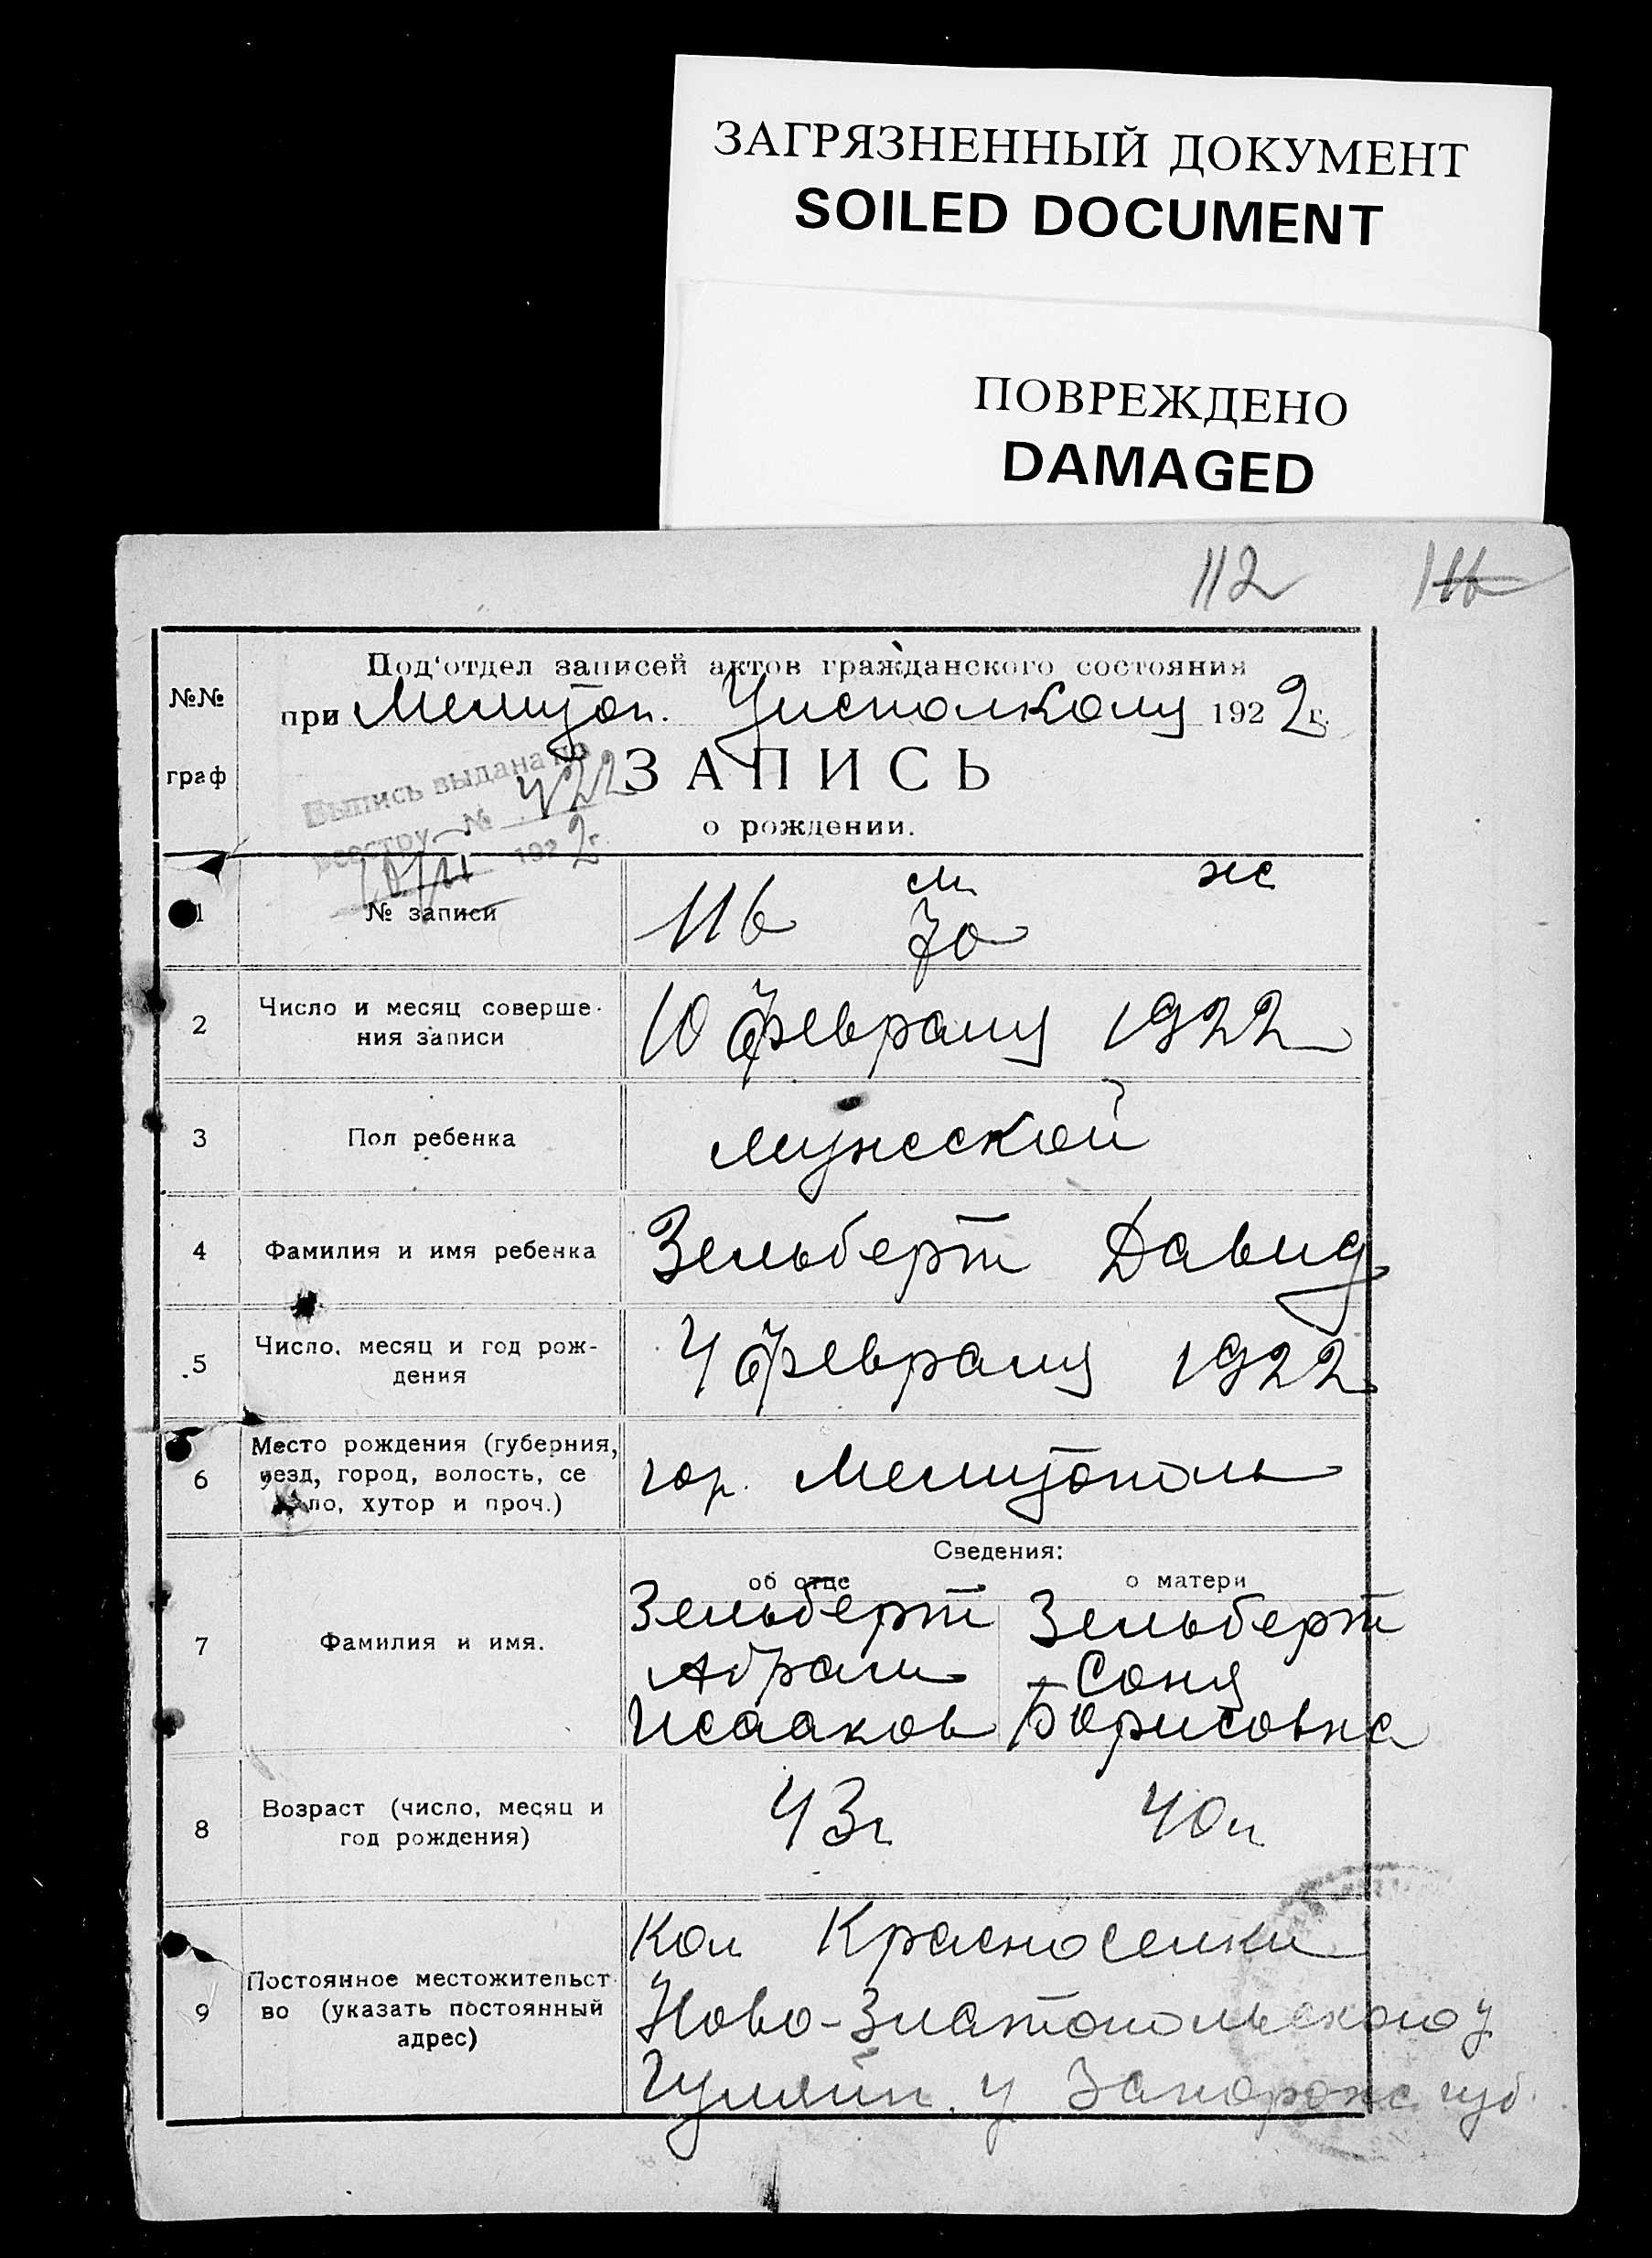 ЗАГРЯЗНЕННЫЙ ДОКУМЕНТ
SOILED DOCUMENT
ПОВРЕЖДЕНО
DAMAGED
112 116
№№
граф
Под'отдел записей актов гражданского состояния
при Мелитоп. Уисполкому 1922 г.
Выпись выдана по
реестру № 422
1922 г.
ЗАПИСЬ
о рождении.
1 № записи 116 м ж
70
2 Число и месяц соверше-
ния записи
10 февраля 1922
3 Пол ребенка мужской
4 Фамилия и имя ребенка Зельберт Давид
5 Число, месяц и год рож-
дения
4 февраля 1922
6 Место рождения (губерния,
уезд, город, волость, се
ло, хутор и проч.)
гор. Мелитополь
Сведения:
об отце о матери
7 Фамилия и имя.
Зельберт Зельберт
Абрам Соня
Исааков Борисовна
8 Возраст (число, месяц и
год рождения)
43 г 40 л
9 Постоянное местожительст
во (указать постоянный
адрес)
Кол Красноселки
Ново-Златопольского у
Гуляйп. у Запорож губ.